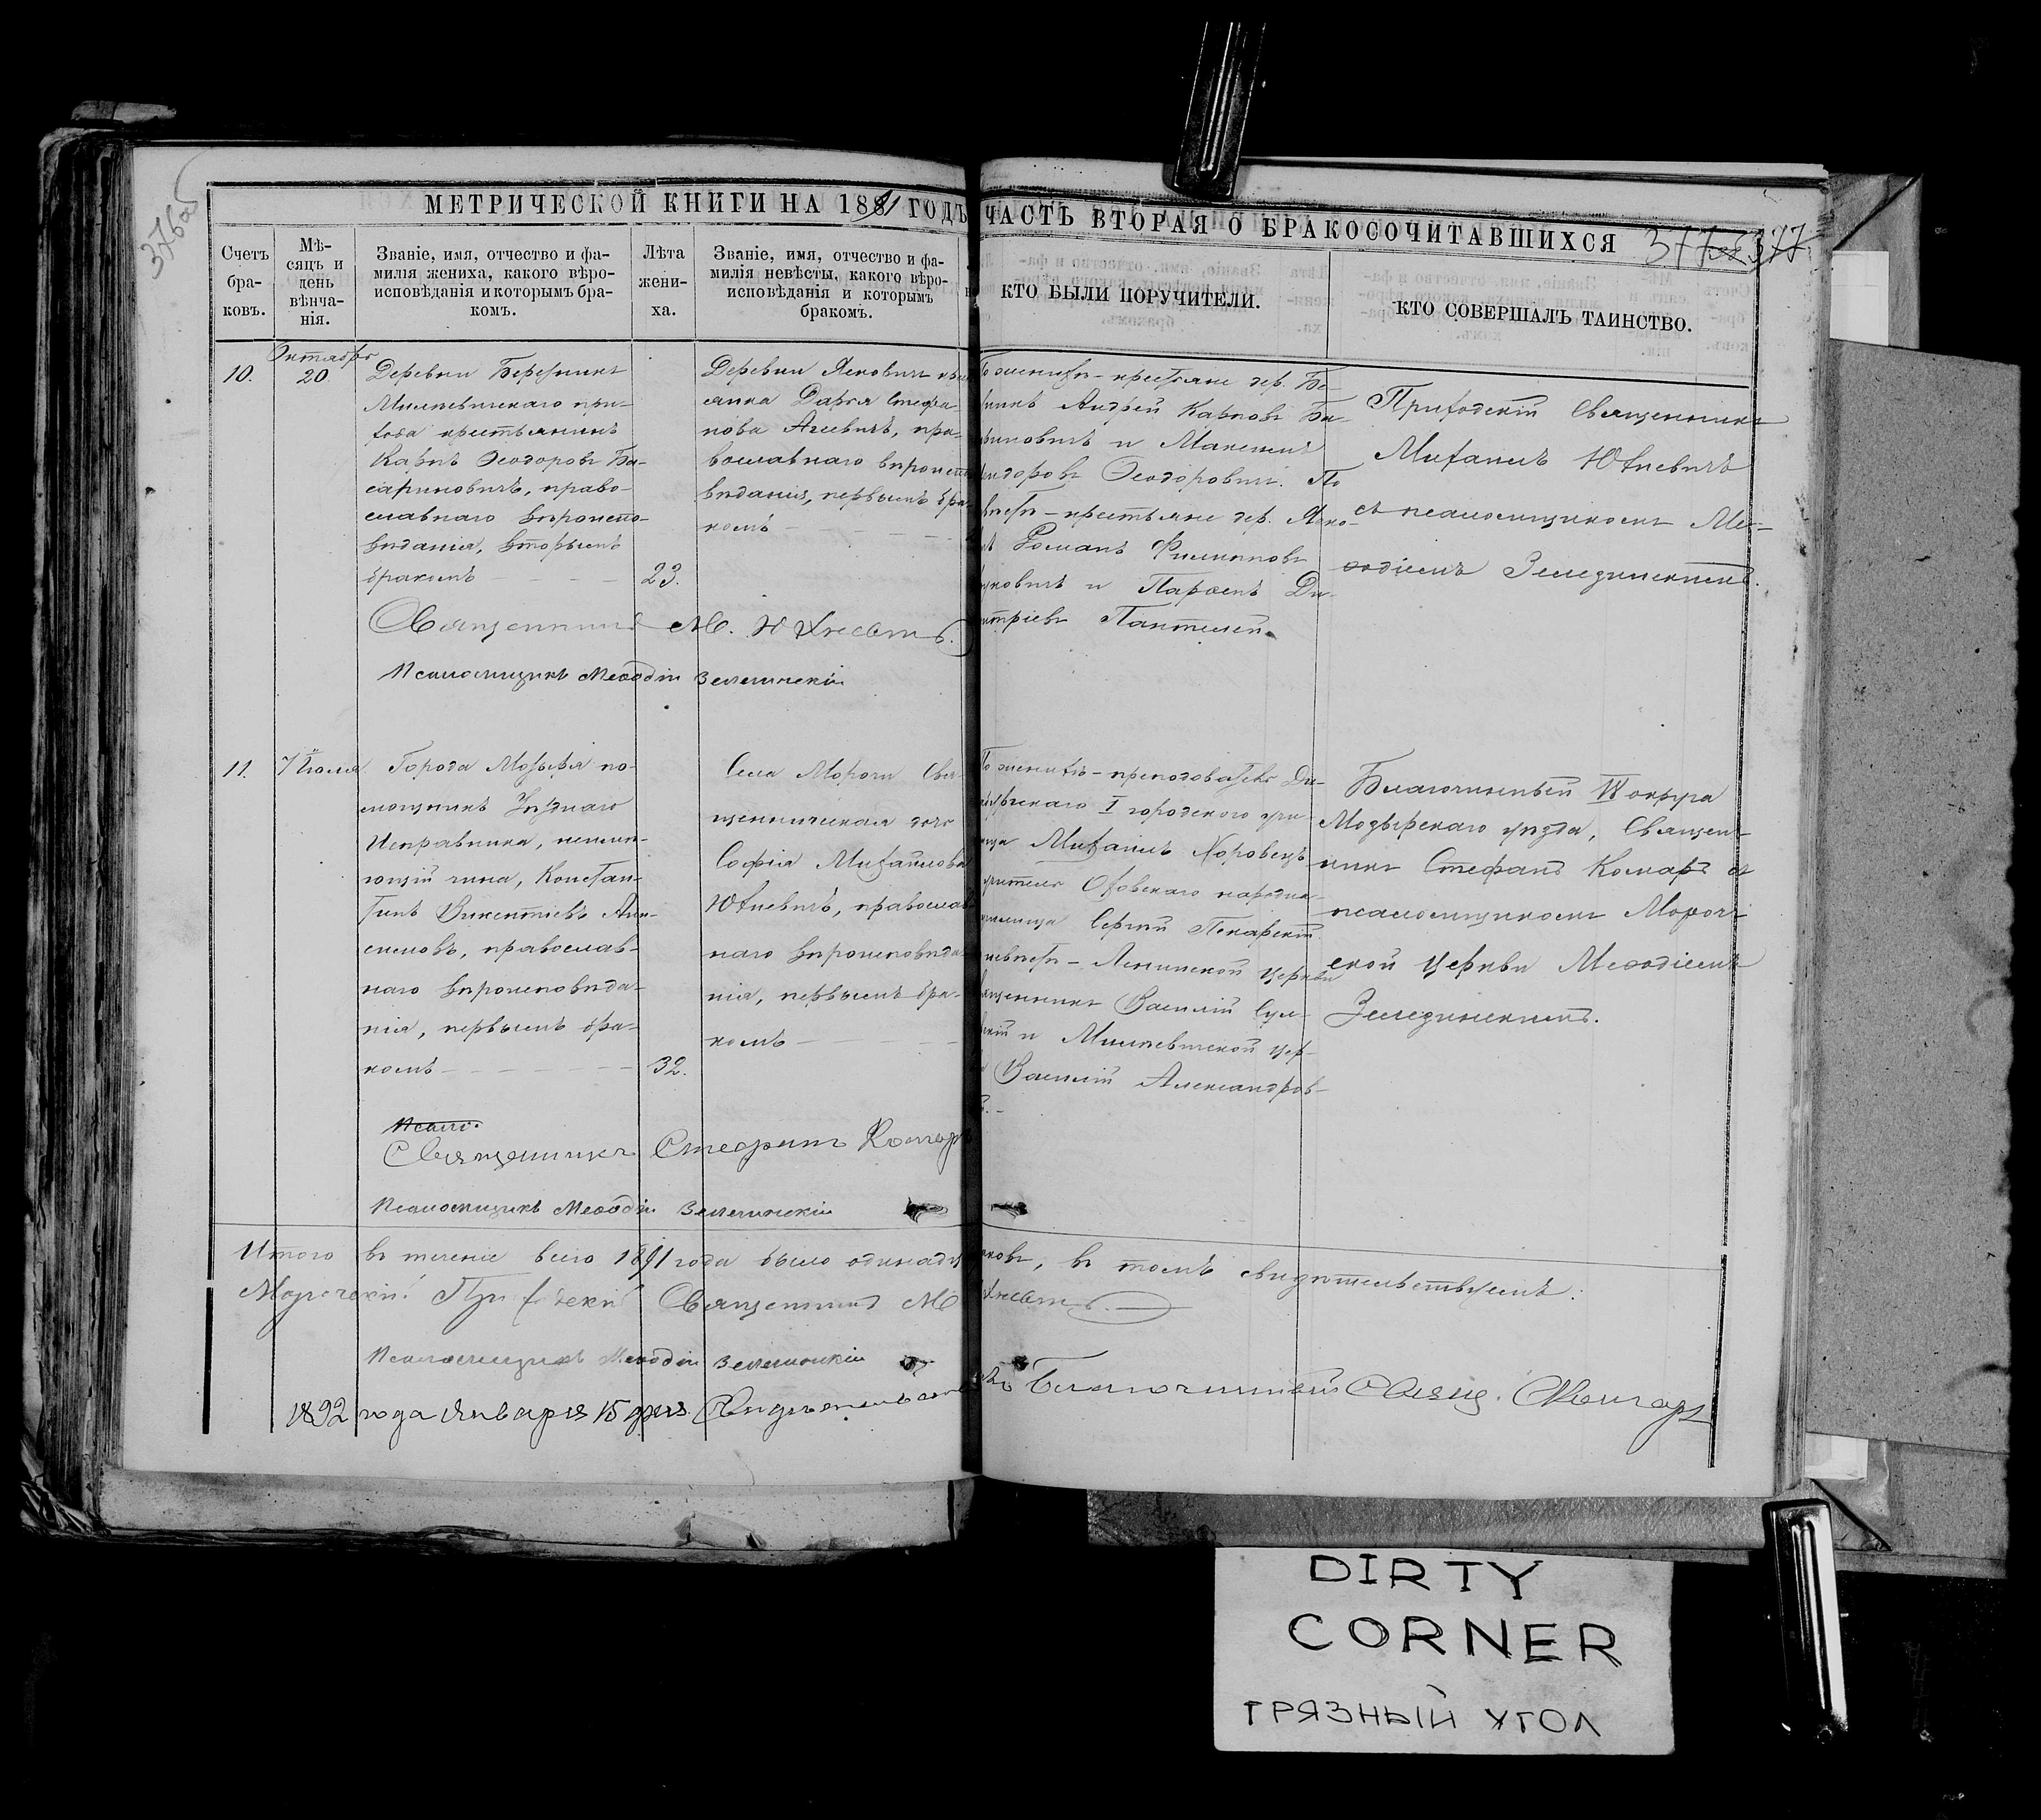 376об
МЕТРИЧЕСКОЙ КНИГИ НА 1891 ГОДЪ
ЧАСТЬ ВТОРАЯ О БРАКОСОЧИТАВШИХСЯ
377
Счетъ бра-ковъ.
Мѣ-сяцъ и день вѣнча-нія.
Званіе, имя, отчество и фа-милія жениха, какого вѣро-исповѣданія и которымъ бра-комъ.
Лѣта жени-ха.
Званіе, имя, отчество и фа-милія невѣсты, какого вѣро-исповѣданія и которымъ бракомъ.
КТО БЫЛИ ПОРУЧИТЕЛИ.
КТО СОВЕРШАЛЪ ТАИНСТВО.
10.
Октября
20
Деревни Березникъ
Милевичскаго при-
хода крестьянинъ
Карпъ Ѳеодоровъ Ба-
сариновичъ, право-
славнаго вѣроиспо-
вѣданія, вторымъ
бракомъ
23.
Деревни Яковичъ
Дарья Стефа-
нова Ачевичъ, пра-
вославнаго вѣроиспо-
вѣданія, первымъ бра-
комъ
По женихѣ - крестьяне дер. Бе-
Андрей Карповъ Ба-
и Максимъ
Ѳеодоровичъ. По
крестьяне дер. Яко-
Романъ Филипповъ
и Парѳенъ Ди-
митріевъ
Приходскій Священникъ
Михаилъ Юхневичъ
съ псаломщикомъ Ме-
ѳодіемъ Зелезинскимъ.
Священникъ М. Юхневичъ.
Псаломщикъ Меѳодій Зелезинскій
11.
7 Іюля
Города Мозыря по-
мощникъ Уѣзднаго
Исправника, неимѣ-
ющій чина, Констан-
тинъ Викентіевъ Ани-
симовъ, православ-
наго вѣроисповѣда-
нія, первымъ бра-
комъ
32.
Села Морочи Свя-
щенническая дочь
Софія Михайлова
Юхневичъ, православ-
наго вѣроисповѣда-
нія, первымъ бра-
комъ
По женихѣ - преподаватель
I городского учи-
Михаилъ Хоровецъ
учитель народна-
училища Сергій Пекарскій
Ленинской церкви
Священникъ Василій
и Милевичской цер-
Василій Александров-
Благочинный IV округа
Мозырскаго уѣзда, Священ-
никъ Стефанъ Комаръ съ
псаломщикомъ Мороч-
ской церкви Меѳодіемъ
Зелезинскимъ.
Псало.
Священникъ Стефанъ Комаръ
Псаломщикъ Меѳодій Зелезинскій
Итого въ теченіе всего 1891 года было одинадц
въ томъ свидѣтельствуемъ:
Морочскій Приходскій Священникъ М. Юхневичъ.
Псаломщикъ Меѳодій Зелезинскій
1892 года Января 15 дня. Благочинный Свящ. С Комаръ
DIRTY
CORNER
ГРЯЗНЫЙ УГОЛ